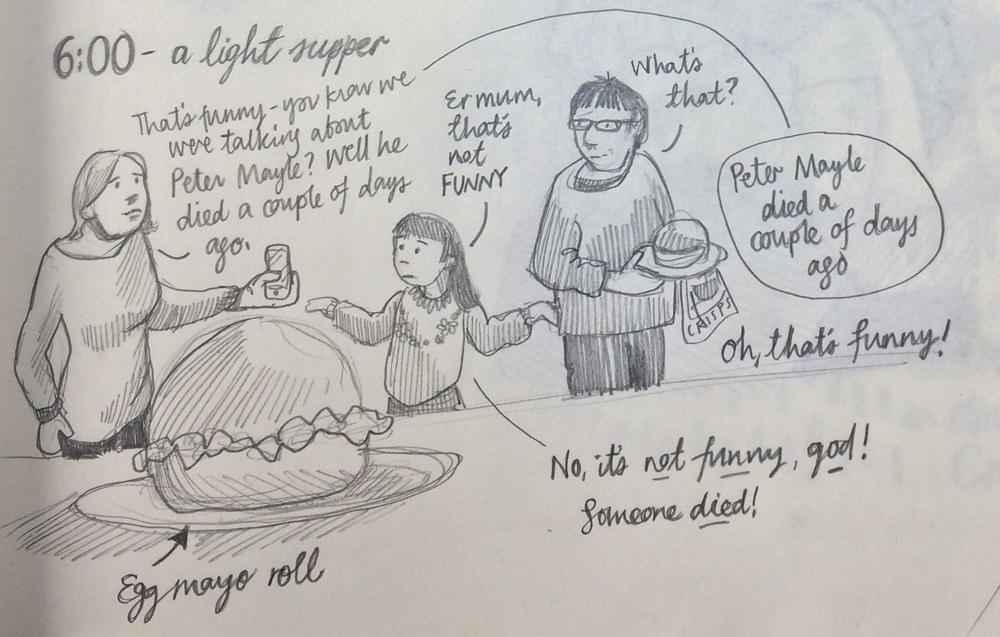 6:00 - a light supper
That's funny - you know we
were talking about
Peter Mayle? Well he
died a couple of days
ago.
Er mum,
that's
not
FUNNY
What's
that?
Peter Mayle
died a
couple of days
ago
CRISPS
Oh, that's funny!
No, it's not funny, god!
Someone died!
Egg mayo roll